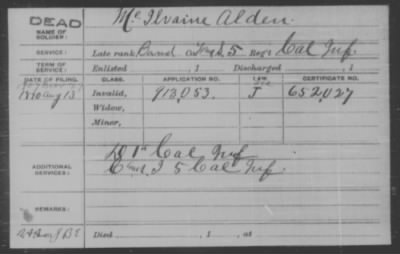 DEAD
NAME OF SOLDIER:
McIlvaine Alden.
SERVICE:
Late rank Band Co. 5 Reg't Cal Inf.
TERM OF SERVICE:
Enlisted , 1 Discharged , 1
DATE OF FILING. CLASS. APPLICATION NO. LAW. CERTIFICATE NO.
1890 Aug 13 Invalid, 913,053. J 652,027
Widow,
Minor,
ADDITIONAL SERVICES:
D 1st Cal Inf
I 5 Cal Inf.
REMARKS:
Died , 1 , at